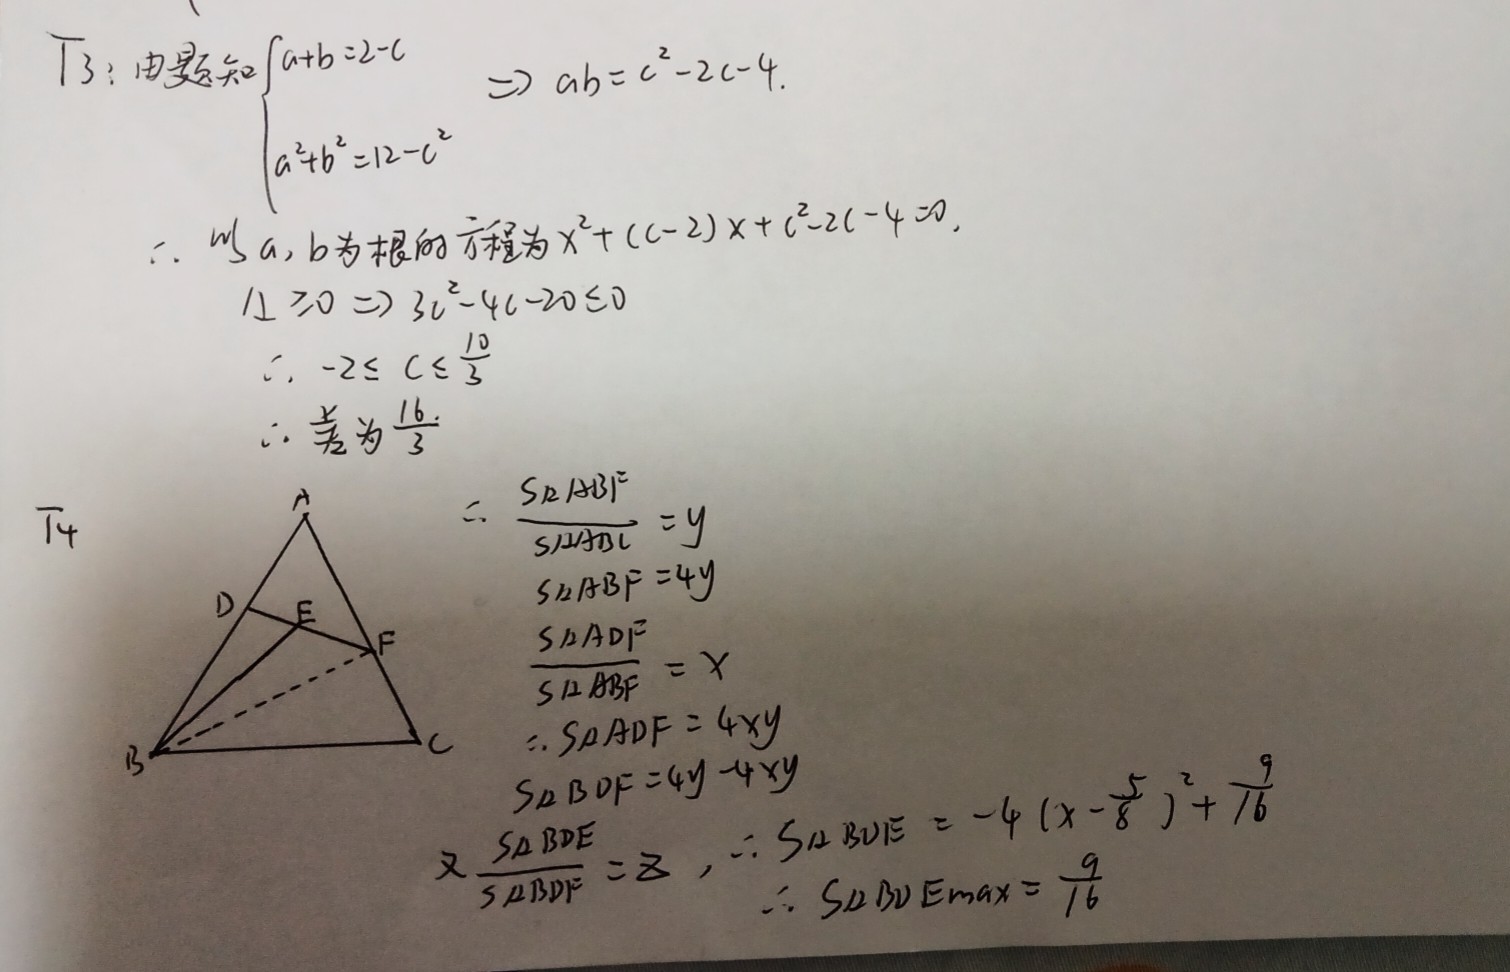 T3:由题知{a+b=2-c ⇒ ab=c²-2c-4.
a²+b²=12-c²
∴ 以a,b为根的方程为x²+(c-2)x+c²-2c-4=0,
Δ≥0 ⇒ 3c²-4c-20≤0
∴ -2≤ c ≤ 10/3
∴ 差为 16/3.
T4
A
D
E
F
B
C
∴ S△ABF/S△ABC = y
S△ABF=4y
S△ADF/S△ABF = x
∴S△ADF=4xy
S△BDF=4y-4xy
又 S△BDE/S△BDF = z, ∴S△BDE = -4(x-5/8)²+9/16
∴ S△BDEmax= 9/16